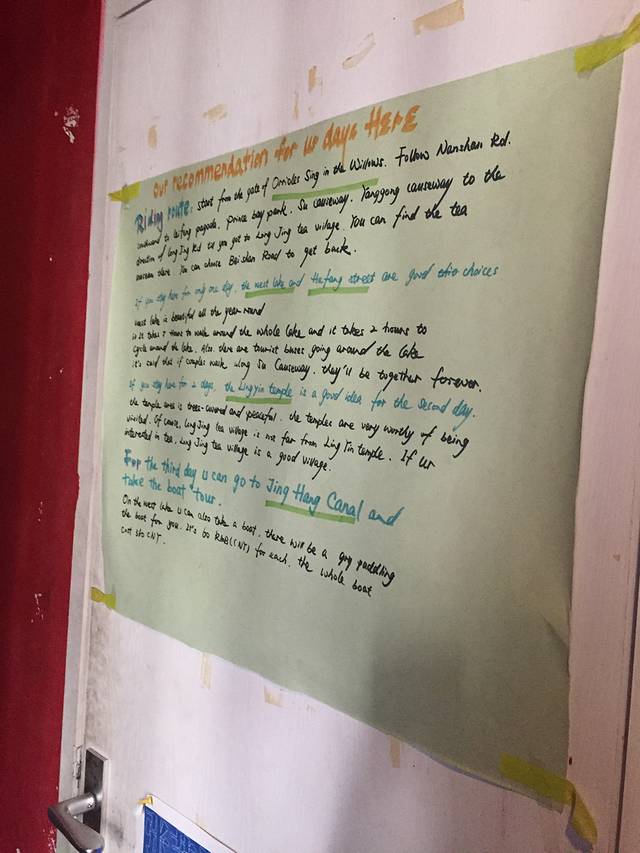 our recommendation for ur days HERE
Riding route: start from the gate of Orrioles Sing in the Willows. Follow Nanshan Rd.
southward to leifeng pagoda. Prince bay park. Su causeway. Yanggong causeway to the
direction of Long Jing Rd til you get to Long Jing tea village. You can find the tea
museum there. You can choose Bei shan Road to get back.
If you stay here for only one day, the west lake and Hefang street are good choices
West lake is beautiful all the year round
takes 5 hours to walk around the whole lake and it takes 2 hours to
cycle around the lake. Also. there are tourist buses going around the lake
it's said that if couples walk along Su Causeway. they'll be together forever.
If you stay here for 2 days, the Lingyin temple is a good idea for the second day.
the temple area is trees-covered and peaceful. the temples are very worthy of being
visited. Of course, Long Jing tea village is not far from Ling Yin temple. If ur
interested in tea, Long Jing tea village is a good village.
For the third day u can go to Jing Hang Canal and
take the boat tour.
On the west lake u can also take a boat. there will be a guy paddling
the boat for you. It's RMB(CNY) for each. the whole boat
cost CNY.